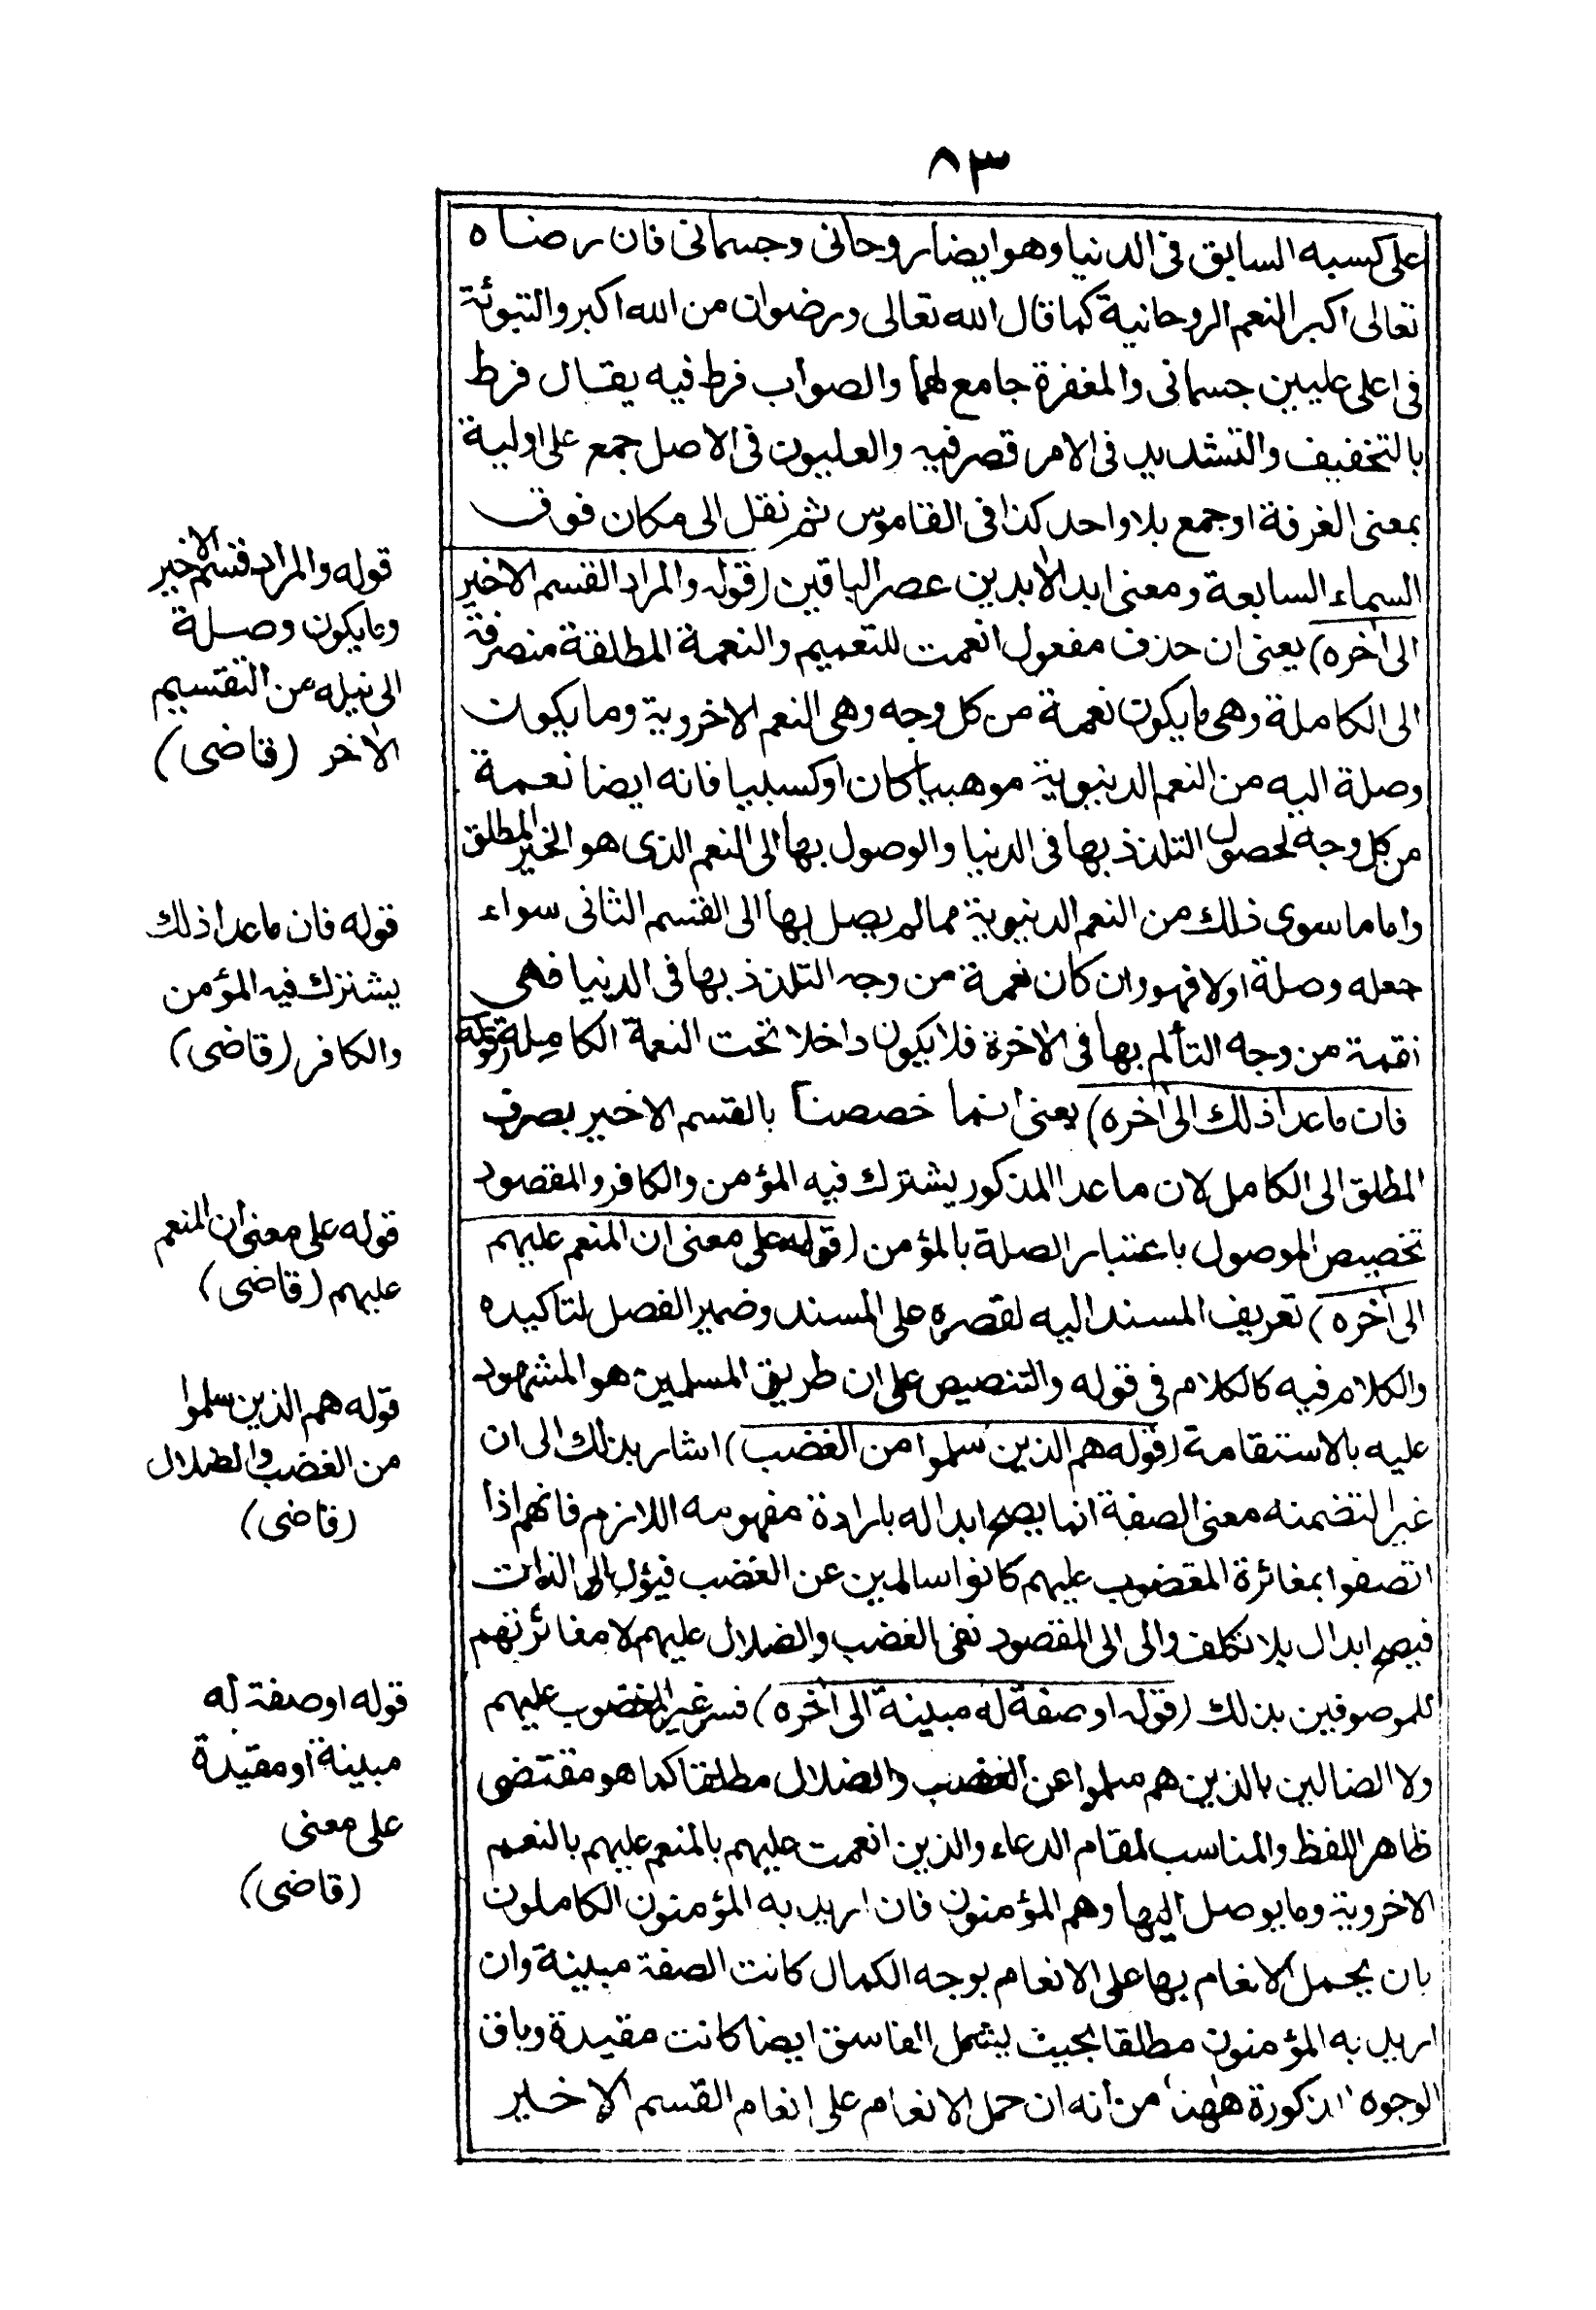 ٨٣
على كسبه السابق فى الدنيا وهو ايضا روحانى وجسمانى فان رضاه
تعالى اكبر النعم الروحانية كما قال الله تعالى ورضوان من الله اكبر والتبوئة
فى اعلى عليين جسمانى والمغفرة جامع لهما والصواب فرط فيه يقال فرط
بالتخفيف والتشديد فى الامر قصر فيه والعليون فى الاصل جمع على اولية
بمعنى الغرفة او جمع بلا واحد كذا فى القاموس ثم نقل الى مكان فوق
السماء السابعة ومعنى ابد الآبدين عصر الباقين (قوله والمراد القسم الاخير
الى آخره) يعنى ان حذف مفعول انعمت للتعميم والنعمة المطلقة منصرفة
الى الكاملة وهى ما يكون نعمة من كل وجه وهى النعم الاخروية وما يكون
وصلة اليه من النعم الدنيوية موهبيا كان او كسبيا فانه ايضا نعمة
من كل وجه لحصول التلذذ بها فى الدنيا والوصول بها الى النعم الذى هو الخير المطلق
واما ما سوى ذلك من النعم الدنيوية مما لم يصل بها الى القسم الثانى سواء
جعله وصلة اولا فهو وان كان نعمة من وجه التلذذ بها فى الدنيا فهى
نقمة من وجه التألم بها فى الآخرة فلا يكون داخلا تحت النعمة الكاملة (قوله
فان ما عدا ذلك الى آخره) يعنى انما خصصنا بالقسم الاخير بصرف
المطلق الى الكامل لان ما عدا المذكور يشترك فيه المؤمن والكافر والمقصود
تخصيص الموصول باعتبار الصلة بالمؤمن (قوله على معنى ان المنعم عليهم
الى آخره) تعريف المسند اليه لقصره على المسند وضمير الفصل لتاكيده
والكلام فيه كالكلام فى قوله والتنصيص على ان طريق المسلمين هو المشهود
عليه بالاستقامة (قوله هم الذين سلموا من الغضب) اشار بذلك الى ان
غير لتضمنه معنى الصفة انما يصح ابداله بارادة مفهومه اللازم فانهم اذا
اتصفوا بمغائرة المغضوب عليهم كانوا سالمين عن الغضب فيؤل الى الذات
فيصح ابدال بلا تكلف والى الى المقصود نفى الغضب والضلال عليهم لا مغائرتهم
للموصوفين بذلك (قوله او صفة له مبينة الى آخره) فسر غير المغضوب عليهم
ولا الضالين بالذين هم سلموا عن الغضب والضلال مطلقا كما هو مقتضى
ظاهر اللفظ والمناسب لمقام الدعاء والذين انعمت عليهم بالمنعم عليهم بالنعم
الاخروية وما يوصل اليها وهم المؤمنون فان اريد به المؤمنون الكاملون
بان يحمل الانعام بها على الانعام بوجه الكمال كانت الصفة مبينة وان
اريد به المؤمنون مطلقا بحيث يشمل الفاسق ايضا كانت مقيدة وباقى
الوجوه المذكورة ههنا من أنه ان حمل الانعام على انعام القسم الاخير
قوله والمراد قسم الاخير
وما يكون وصلة
الى نيله من التقسيم
الآخر (قاضى)
قوله فان ما عدا ذلك
يشترك فيه المؤمن
والكافر (قاضى)
قوله على معنى ان المنعم
عليهم (قاضى)
قوله هم الذين سلموا
من الغضب والضلال
(قاضى)
قوله او صفة له
مبينة او مقيدة
على معنى
(قاضى)